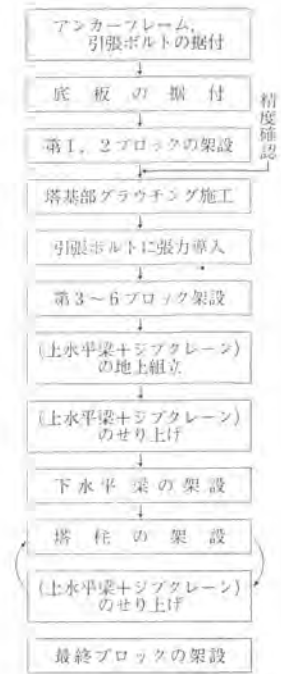 アンカーフレーム,
引張ボルトの据付
底板の据付
精度確認
第1, 2ブロックの架設
塔基部グラウチング施工
引張ボルトに張力導入
第3～6ブロック架設
(上水平梁+ジブクレーン)
の地上組立
(上水平梁+ジブクレーン)
のせり上げ
下水平梁の架設
塔柱の架設
(上水平梁+ジブクレーン)
のせり上げ
最終ブロックの架設